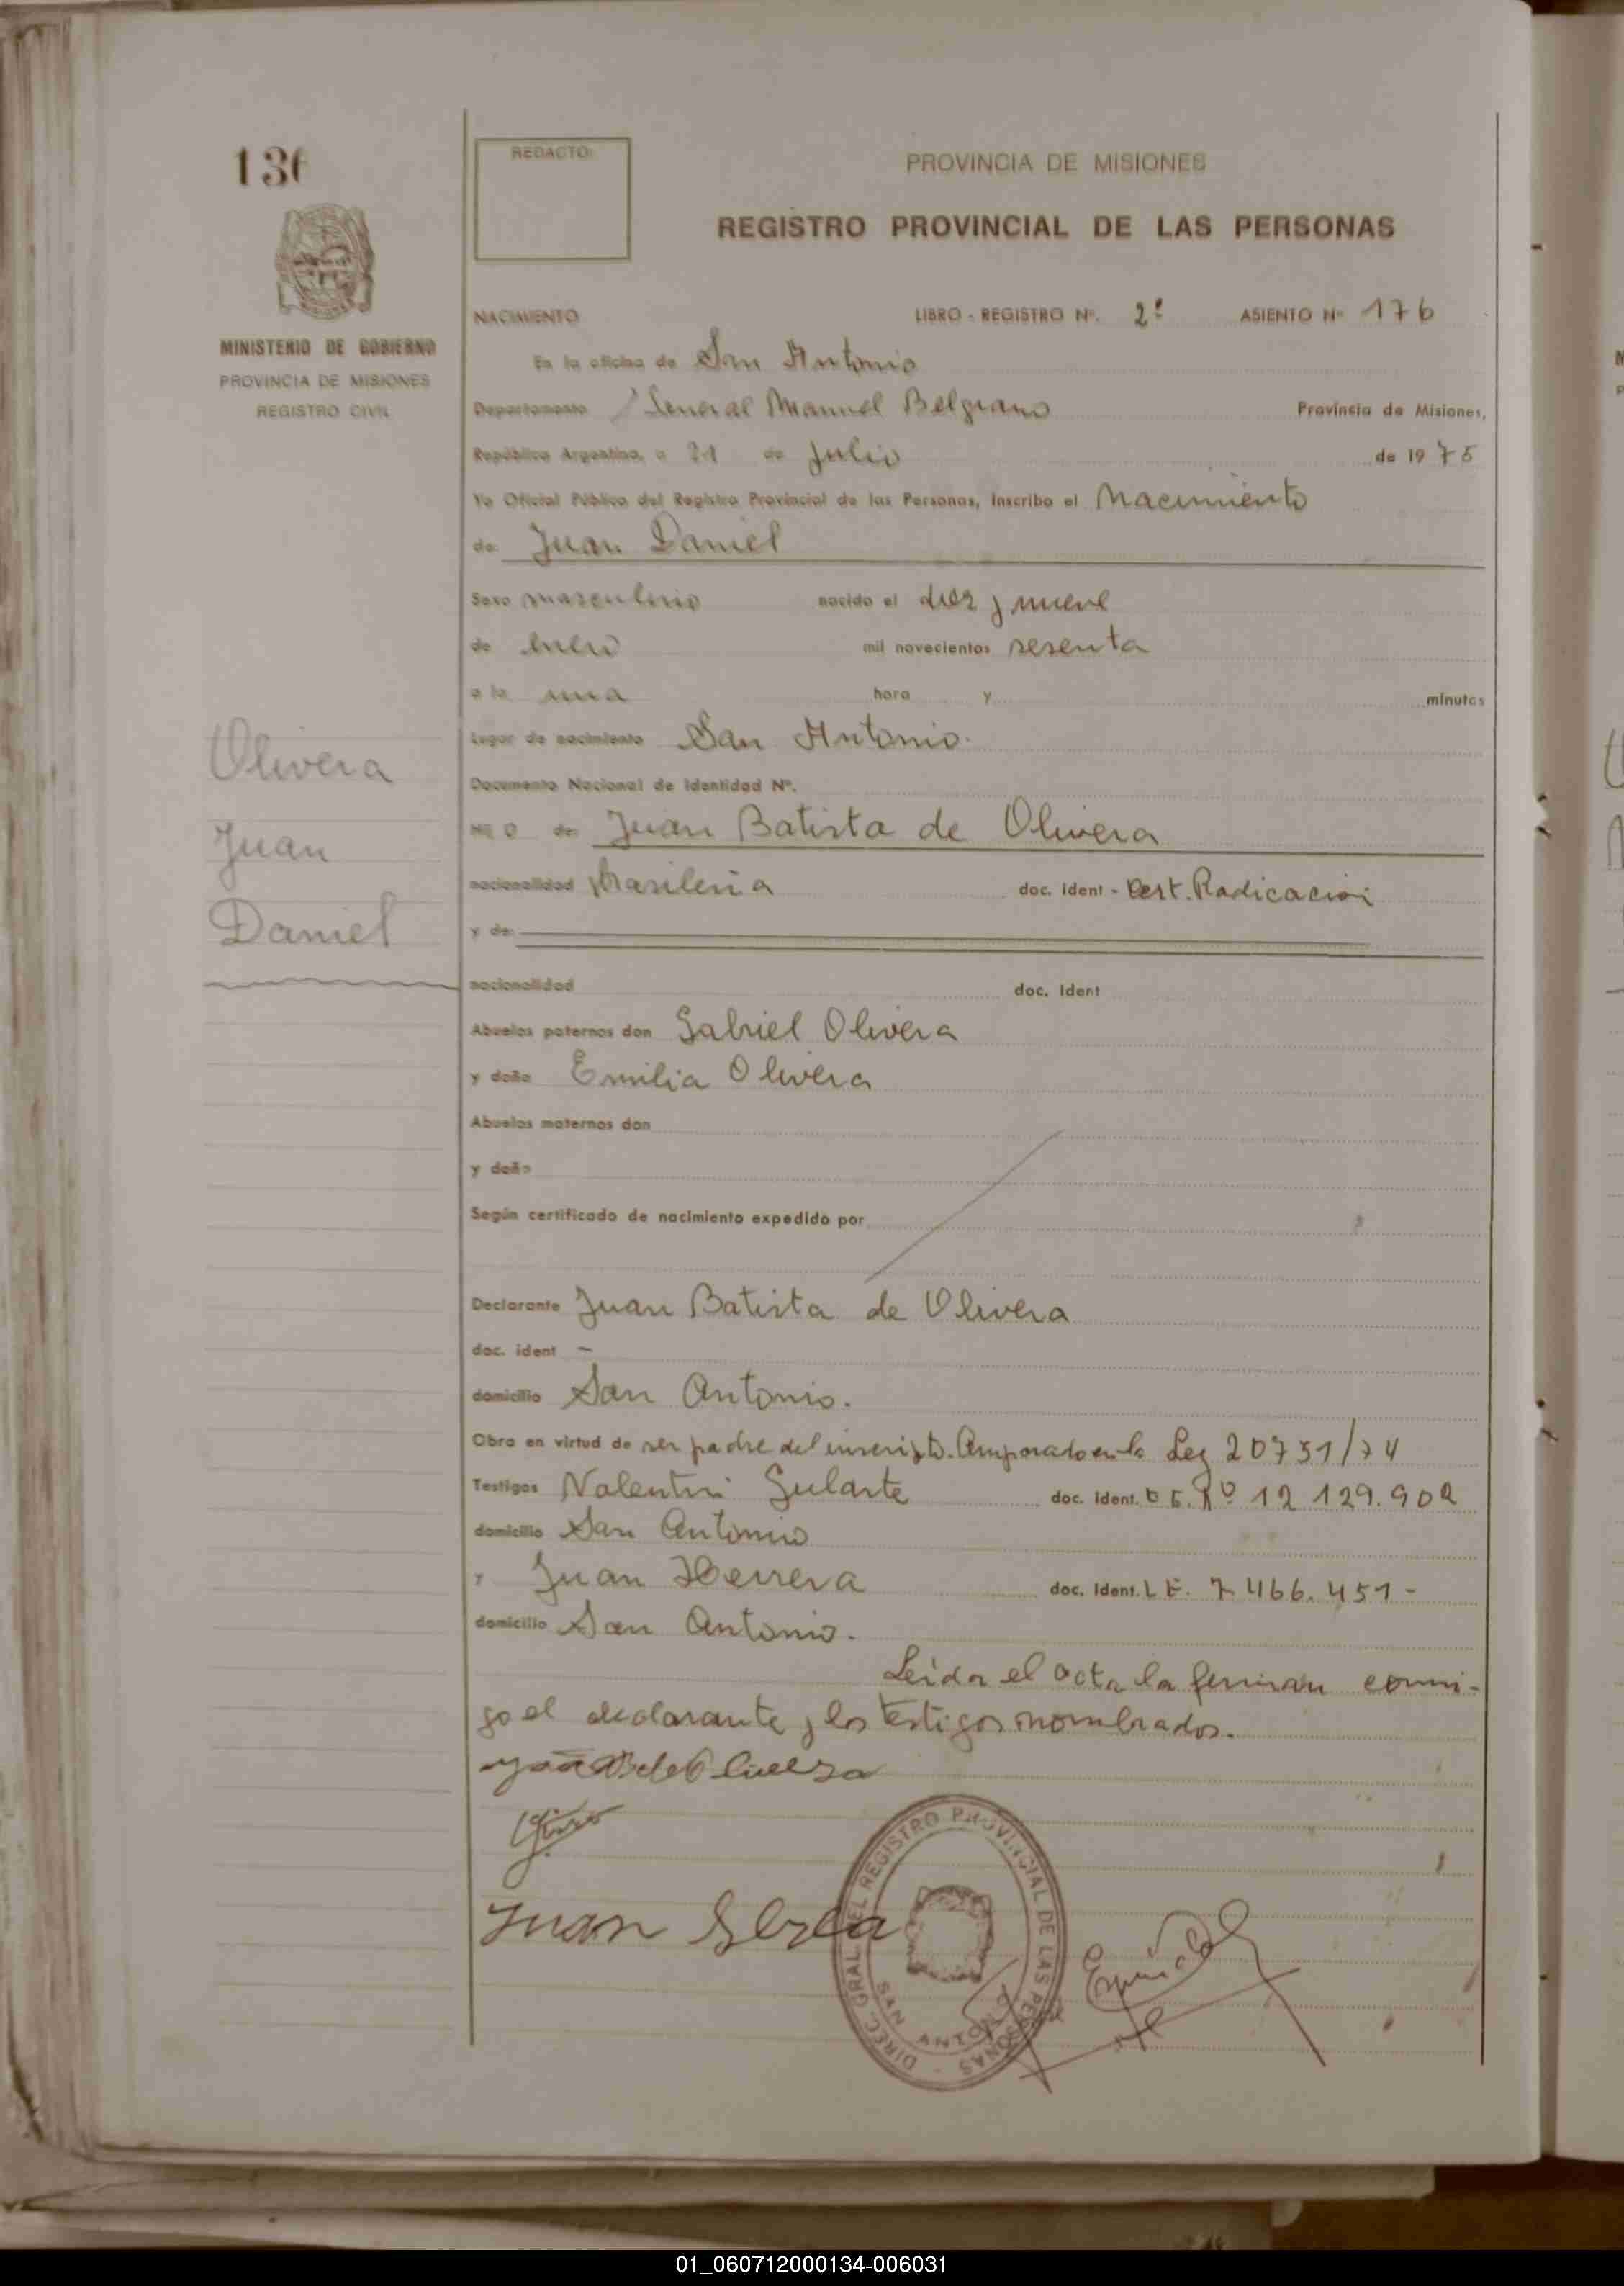 136
REDACTO:
PROVINCIA DE MISIONES
REGISTRO PROVINCIAL DE LAS PERSONAS
MINISTERIO DE GOBIERNO
PROVINCIA DE MISIONES
REGISTRO CIVIL
NACIMIENTO LIBRO - REGISTRO Nº. 2º ASIENTO Nº 176
En la oficina de San Antonio
Departamento General Manuel Belgrano Provincia de Misiones,
República Argentina, a 21 de Julio de 1975
Yo Oficial Público del Registro Provincial de las Personas, inscribo el Nacimiento
de: Juan Daniel
Sexo masculino nacido el diez y nueve
de enero mil novecientos sesenta
a la una hora y minutos
Lugar de nacimiento San Antonio.
Documento Nacional de Identidad Nº.
Olivera
Juan
Daniel
Hijo de: Juan Batista de Olivera
nacionalidad Brasileña doc. ident - Cert. Radicacion
y de:
nacionalidad doc. ident
Abuelos paternos don Gabriel Olivera
y doña Emilia Olivera
Abuelos maternos don
y doña
Según certificado de nacimiento expedido por
Declarante Juan Batista de Olivera
doc. ident –
domicilio San Antonio.
Obra en virtud de ser padre del inscripto. Amparado en la Ley 20751/74
Testigos Valentin Gularte doc. ident. Nº 12 129.902
domicilio San Antonio
y Juan Herrera doc. ident. L E. 7 466.451-
domicilio San Antonio.
Leida el acta la firman conmi-
go el declarante y los testigos nombrados.
Juan
DIREC. GRAL. DEL REGISTRO PROVINCIAL DE LAS PERSONAS -
SAN ANTONIO
01_060712000134-006031